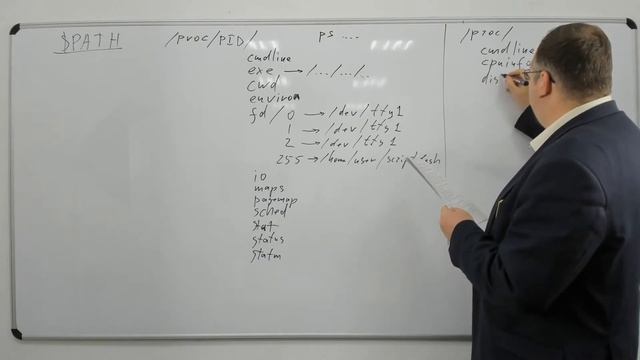 $PATH
/proc/PID/ ps ....
cmdline
exe → /.../.../..
cwd
environ
fd/0 → /dev/tty1
1 → /dev/tty1
2 → /dev/tty1
255 → /home/user/script.bash
io
maps
pagemap
sched
stat
status
statm
/proc/
cmdline
cpuinfo
dis